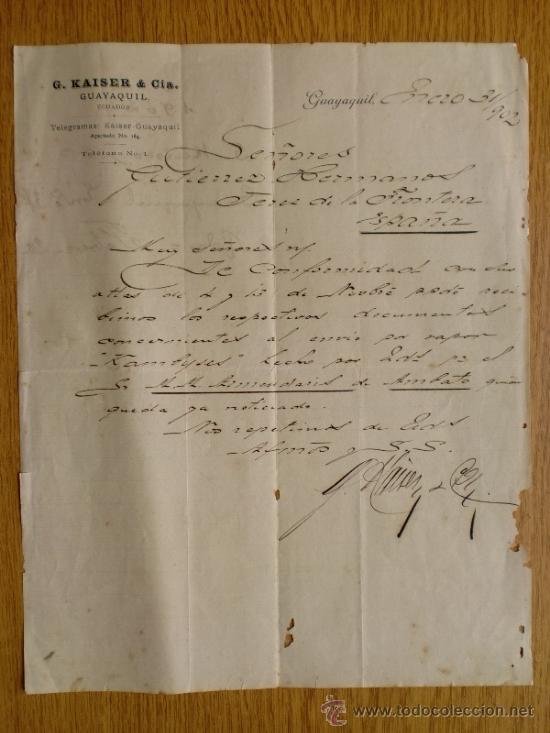 G. KAISER & Cía.
GUAYAQUIL.
ECUADOR
Telegramas: Kaiser-Guayaquil
Apartado No. 164.
Teléfono No. 1.
Guayaquil, Enero 31/902
Señores
Gutierrez Hermanos
Jerez de la Frontera
España
Muy señores n/
De conformidad con sus
attas de 6 y 15 de Novbre ppdo reci-
bimos los respectivos documentos
concernientes al envio por vapor
"Kambyses" hecho por Uds pa el
Sr. M. M. Armendaris de Ambato quien
queda ya noticiado.
Nos repetimos de Uds
Afmos y S. S.
G. Kaiser & Cía.
todocoleccion
www.todocoleccion.net